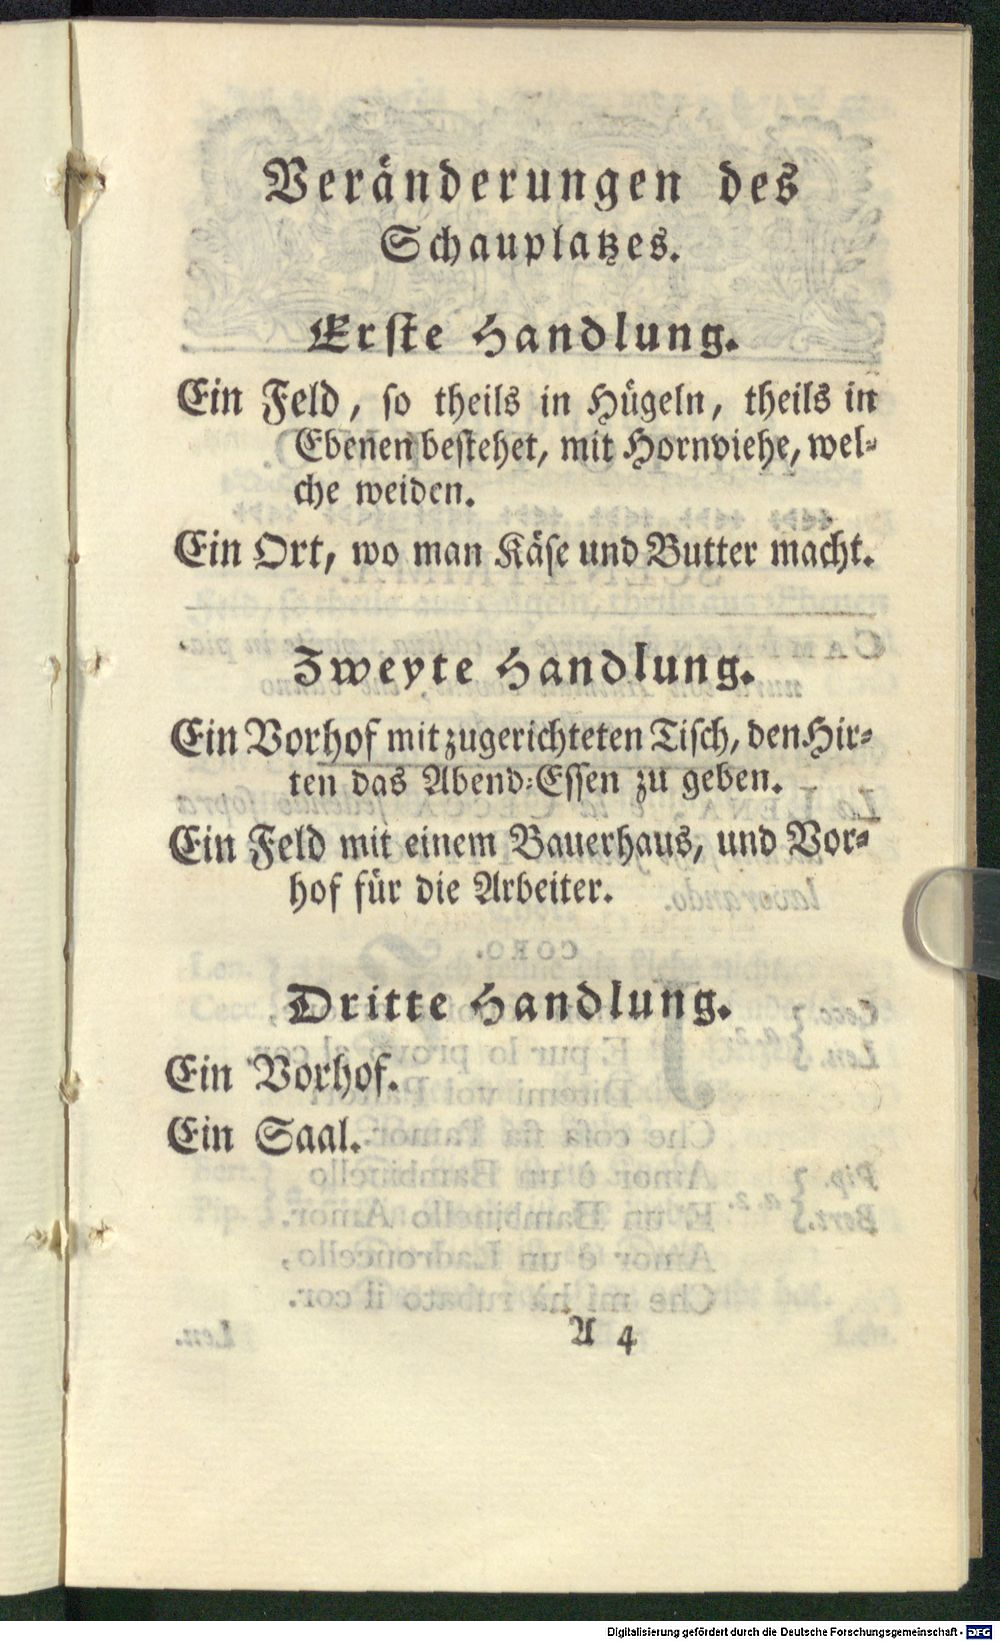 Veränderungen des
Schauplatzes.
Erste Handlung.
Ein Feld, so theils in Hügeln, theils in
Ebenen bestehet, mit Hornviehe, wel-
che weiden.
Ein Ort, wo man Käse und Butter macht.
Zweyte Handlung.
Ein Vorhof mit zugerichteten Tisch, den Hir-
ten das Abend-Essen zu geben.
Ein Feld mit einem Bauerhaus, und Vor-
hof für die Arbeiter.
Dritte Handlung.
Ein Vorhof.
Ein Saal.
A 4
Digitalisierung gefördert durch die Deutsche Forschungsgemeinschaft - DFG